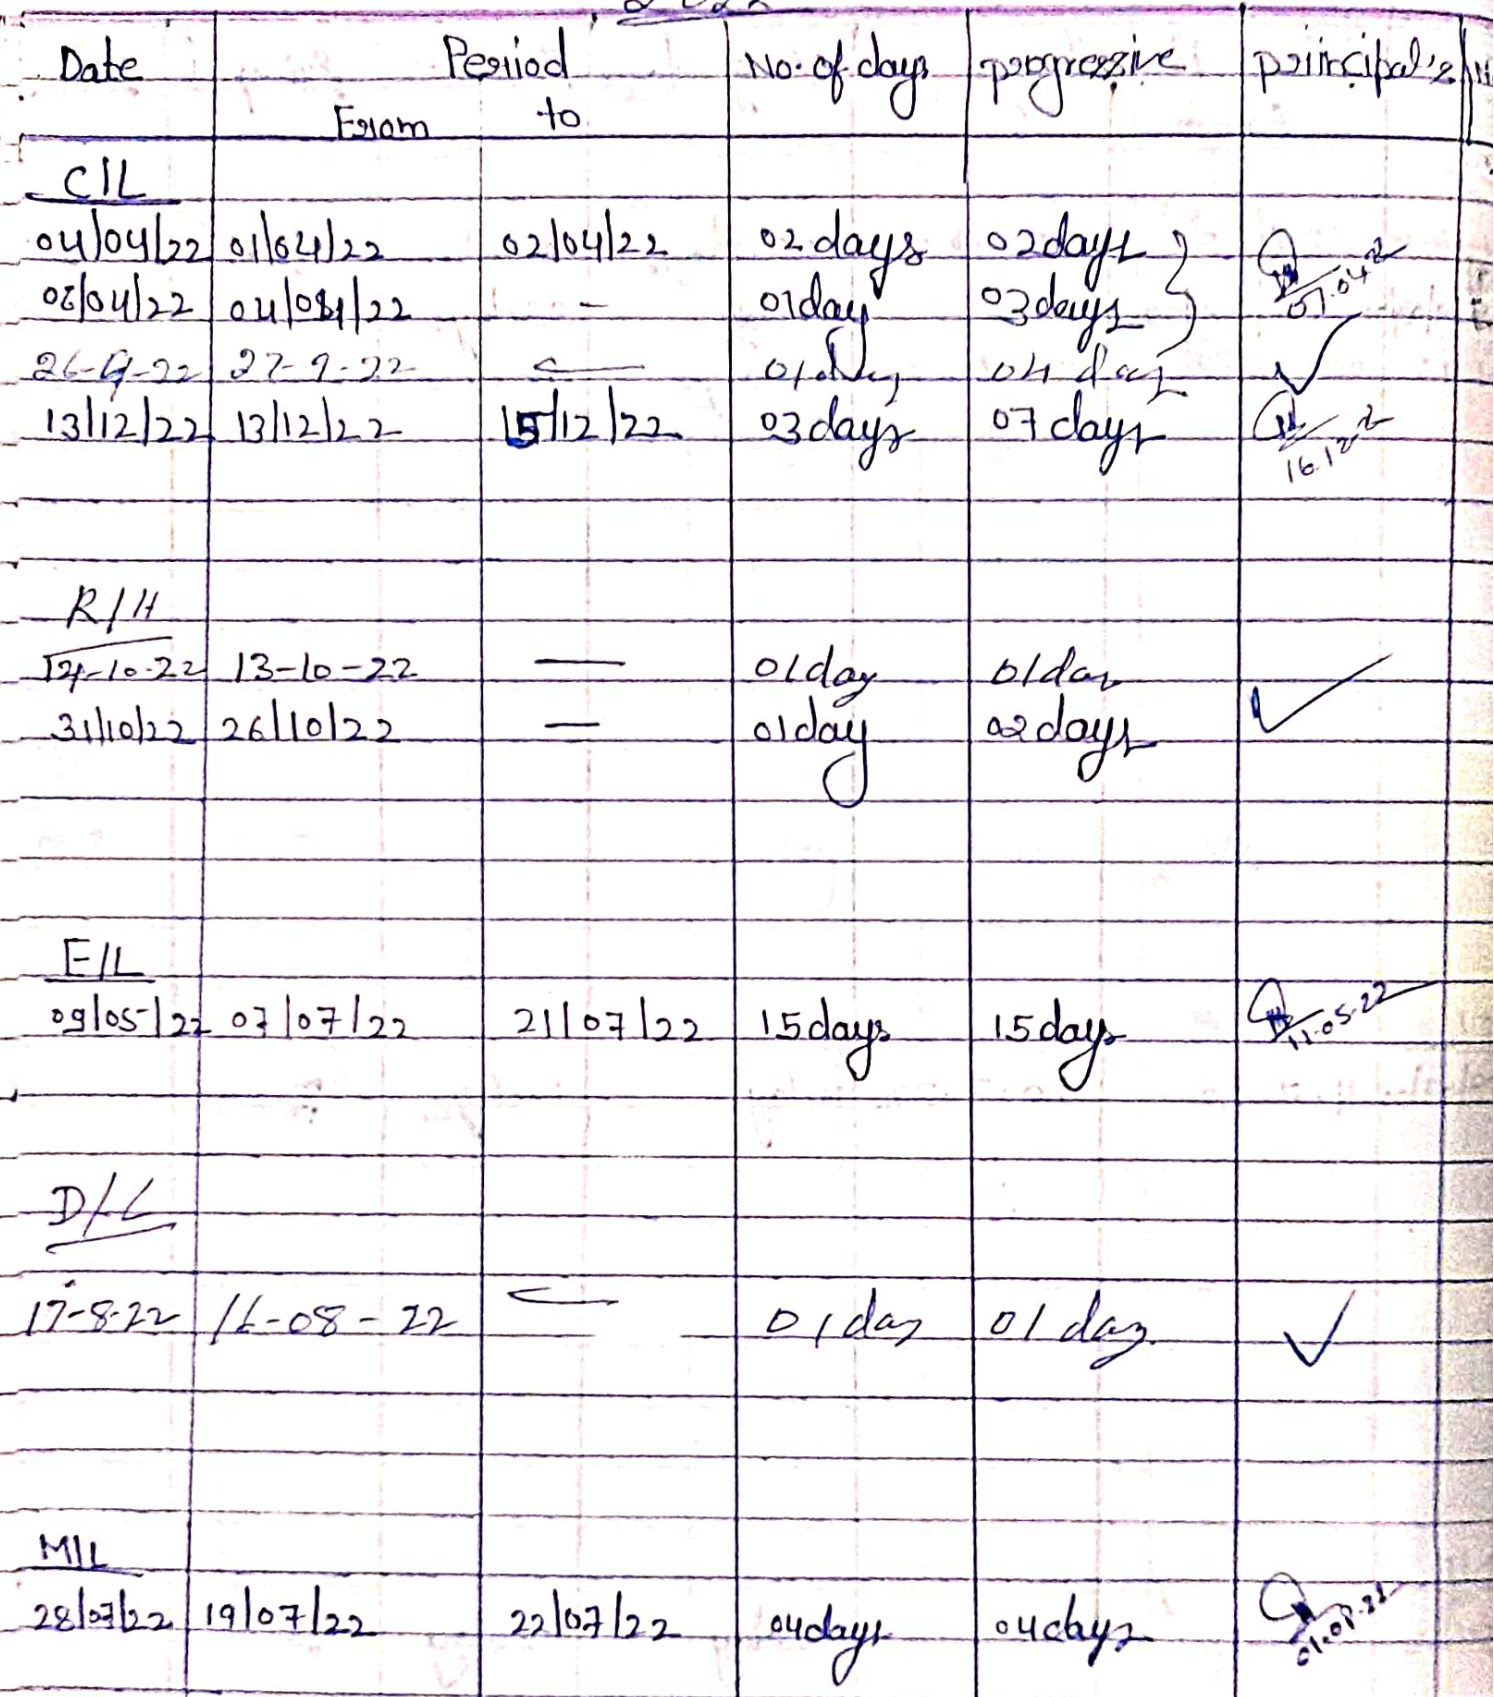 2022
Date Period No. of days progressive principal's
From to
C/L
04/04/22 01/04/22 02/04/22 02 days 02 days
06/04/22 04/04/22 - 01 day 03 days 07.04.22
26-9-22 27-9-22 — 01 day 04 day ✓
13/12/22 13/12/22 15/12/22 03 days 07 days
16.12.22
R/H
12-10-22 13-10-22 — 01 day 01 day
31/10/22 26/10/22 — 01 day 02 days ✓
E/L
09/05/22 07/07/22 21/07/22 15 days 15 days 11.05.22
D/L
17-8-22 16-08-22 — 01 day 01 day ✓
M/L
28/07/22 19/07/22 22/07/22 04 days 04 days 01.08.22